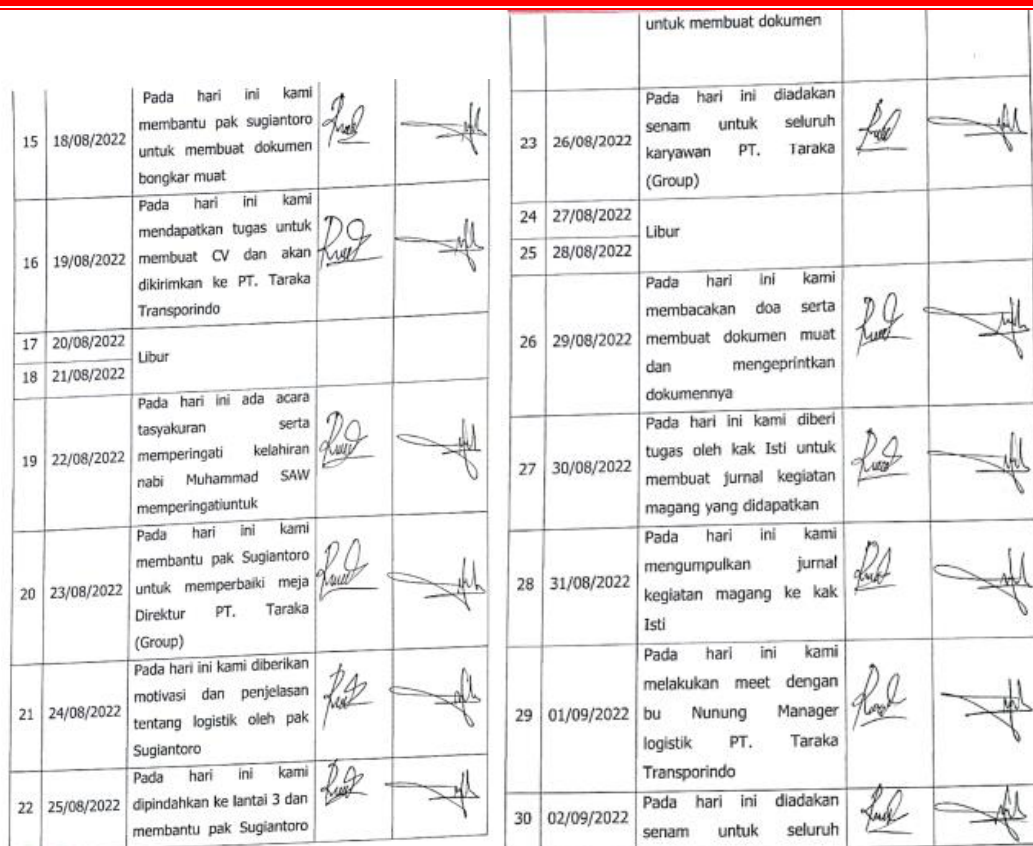 15 18/08/2022
Pada hari ini kami
membantu pak sugiantoro
untuk membuat dokumen
bongkar muat
16 19/08/2022
Pada hari ini kami
mendapatkan tugas untuk
membuat CV dan akan
dikirimkan ke PT. Taraka
Transporindo
17 20/08/2022
Libur
18 21/08/2022
19 22/08/2022
Pada hari ini ada acara
tasyakuran serta
memperingati kelahiran
nabi Muhammad SAW
memperingatiuntuk
20 23/08/2022
Pada hari ini kami
membantu pak Sugiantoro
untuk memperbaiki meja
Direktur PT. Taraka
(Group)
21 24/08/2022
Pada hari ini kami diberikan
motivasi dan penjelasan
tentang logistik oleh pak
Sugiantoro
22 25/08/2022
Pada hari ini kami
dipindahkan ke lantai 3 dan
membantu pak Sugiantoro
untuk membuat dokumen
23 26/08/2022
Pada hari ini diadakan
senam untuk seluruh
karyawan PT. Taraka
(Group)
24 27/08/2022
Libur
25 28/08/2022
26 29/08/2022
Pada hari ini kami
membacakan doa serta
membuat dokumen muat
dan mengeprintkan
dokumennya
27 30/08/2022
Pada hari ini kami diberi
tugas oleh kak Isti untuk
membuat jurnal kegiatan
magang yang didapatkan
28 31/08/2022
Pada hari ini kami
mengumpulkan jurnal
kegiatan magang ke kak
Isti
29 01/09/2022
Pada hari ini kami
melakukan meet dengan
bu Nunung Manager
logistik PT. Taraka
Transporindo
30 02/09/2022
Pada hari ini diadakan
senam untuk seluruh